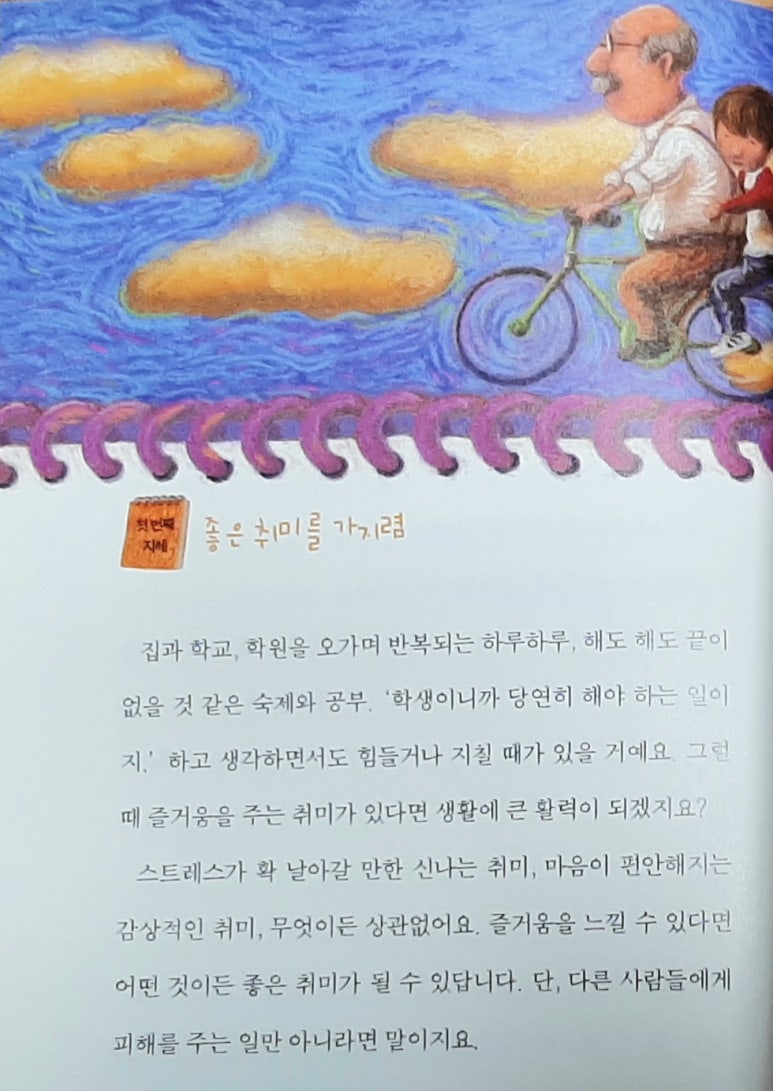 첫 번째
지혜
좋은 취미를 가지렴
집과 학교, 학원을 오가며 반복되는 하루하루, 해도 해도 끝이
없을 것 같은 숙제와 공부. ‘학생이니까 당연히 해야 하는 일이
지.’ 하고 생각하면서도 힘들거나 지칠 때가 있을 거예요. 그럴
때 즐거움을 주는 취미가 있다면 생활에 큰 활력이 되겠지요?
스트레스가 확 날아갈 만한 신나는 취미, 마음이 편안해지는
감상적인 취미, 무엇이든 상관없어요. 즐거움을 느낄 수 있다면
어떤 것이든 좋은 취미가 될 수 있답니다. 단, 다른 사람들에게
피해를 주는 일만 아니라면 말이지요.